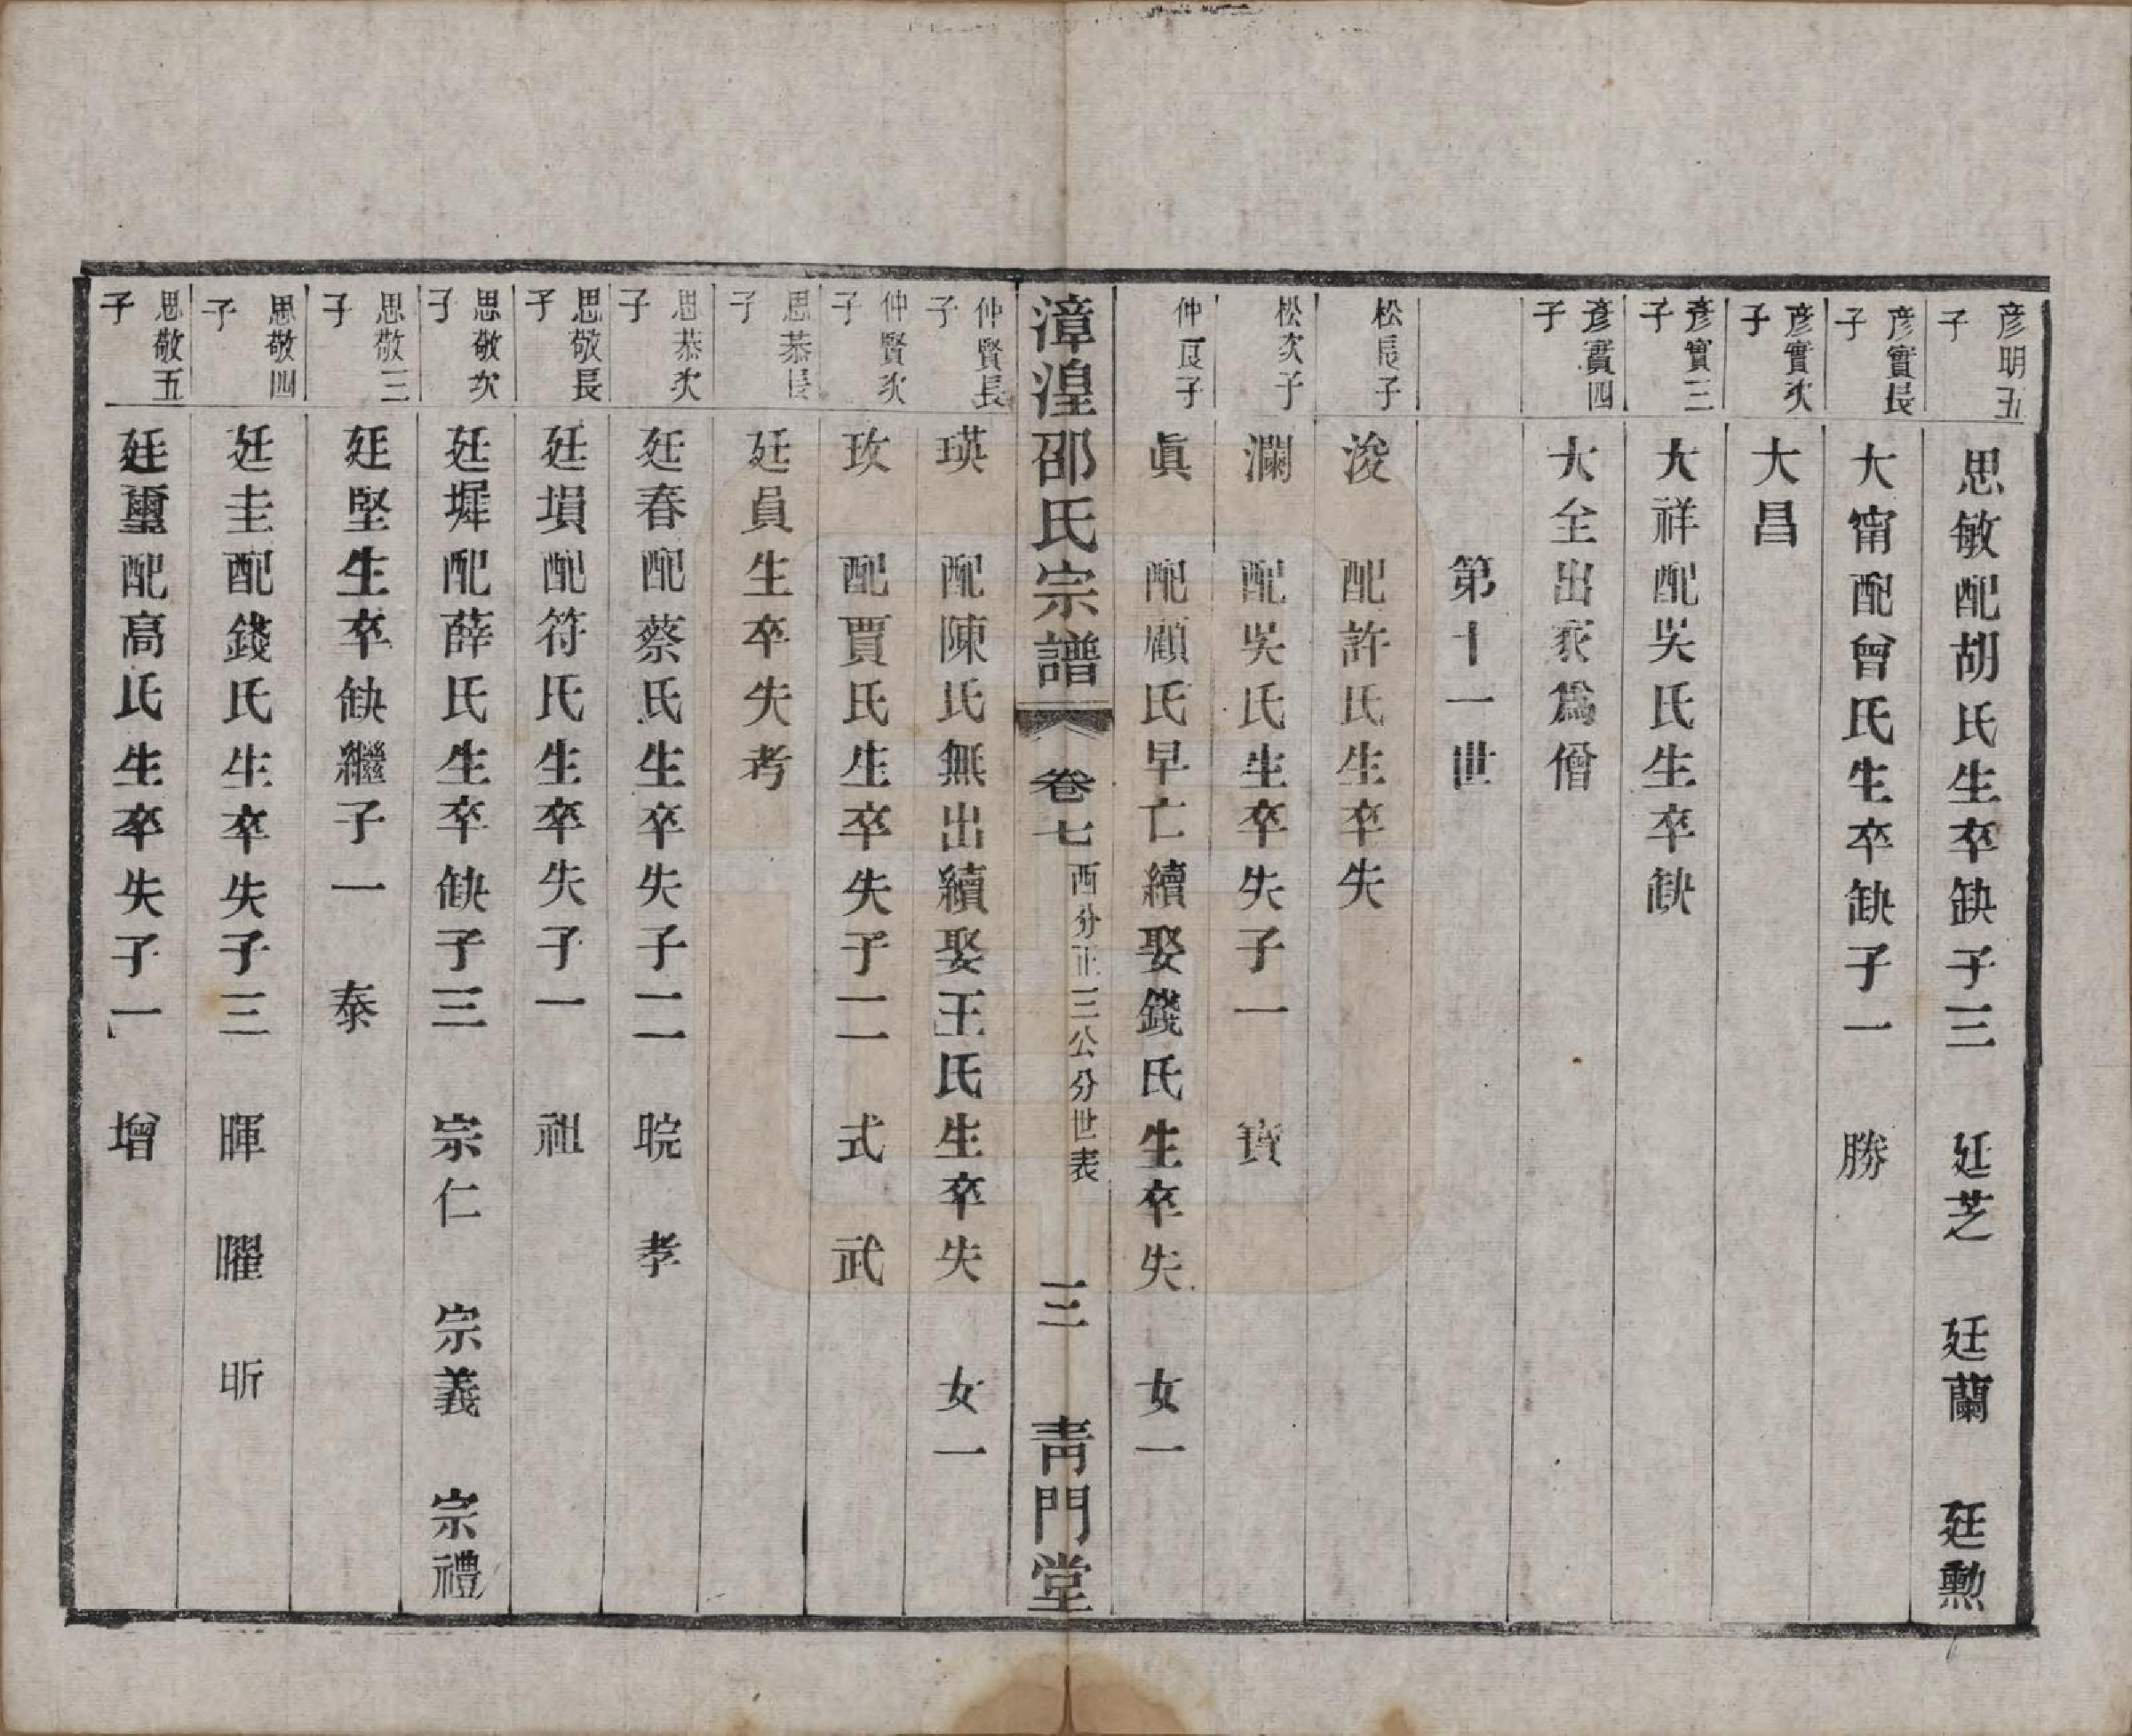 彥明五子 思敏配胡氏生卒缺子三 廷芝 廷蘭 廷勲
彥實長子 大甯配曾氏生卒缺子一 勝
彥實次子 大昌
彥實三子 大祥配吳氏生卒缺
彥實四子 大全出家爲僧
第十一世
松長子 浚 配許氏生卒失
松次子 瀾 配吳氏生卒失子一 寶
仲良子 眞 配顧氏早亡續娶錢氏生卒失 女一
漳湟邵氏宗譜 卷七 西分正三公分世表 三 靑門堂
仲賢長子 瑛 配陳氏無出續娶王氏生卒失 女一
仲賢次子 玫 配賈氏生卒失子二 式 武
思恭長子 廷員生卒失考
思恭次子 廷春配蔡氏生卒失子二 晥 孝
思敬長子 廷塤配符氏生卒失子一 祖
思敬次子 廷墀配薛氏生卒缺子三 宗仁 宗義 宗禮
思敬三子 廷堅生卒缺繼子一 泰
思敬四子 廷圭配錢氏生卒失子三 暉 曜 昕
思敬五子 廷璽配高氏生卒失子一 增